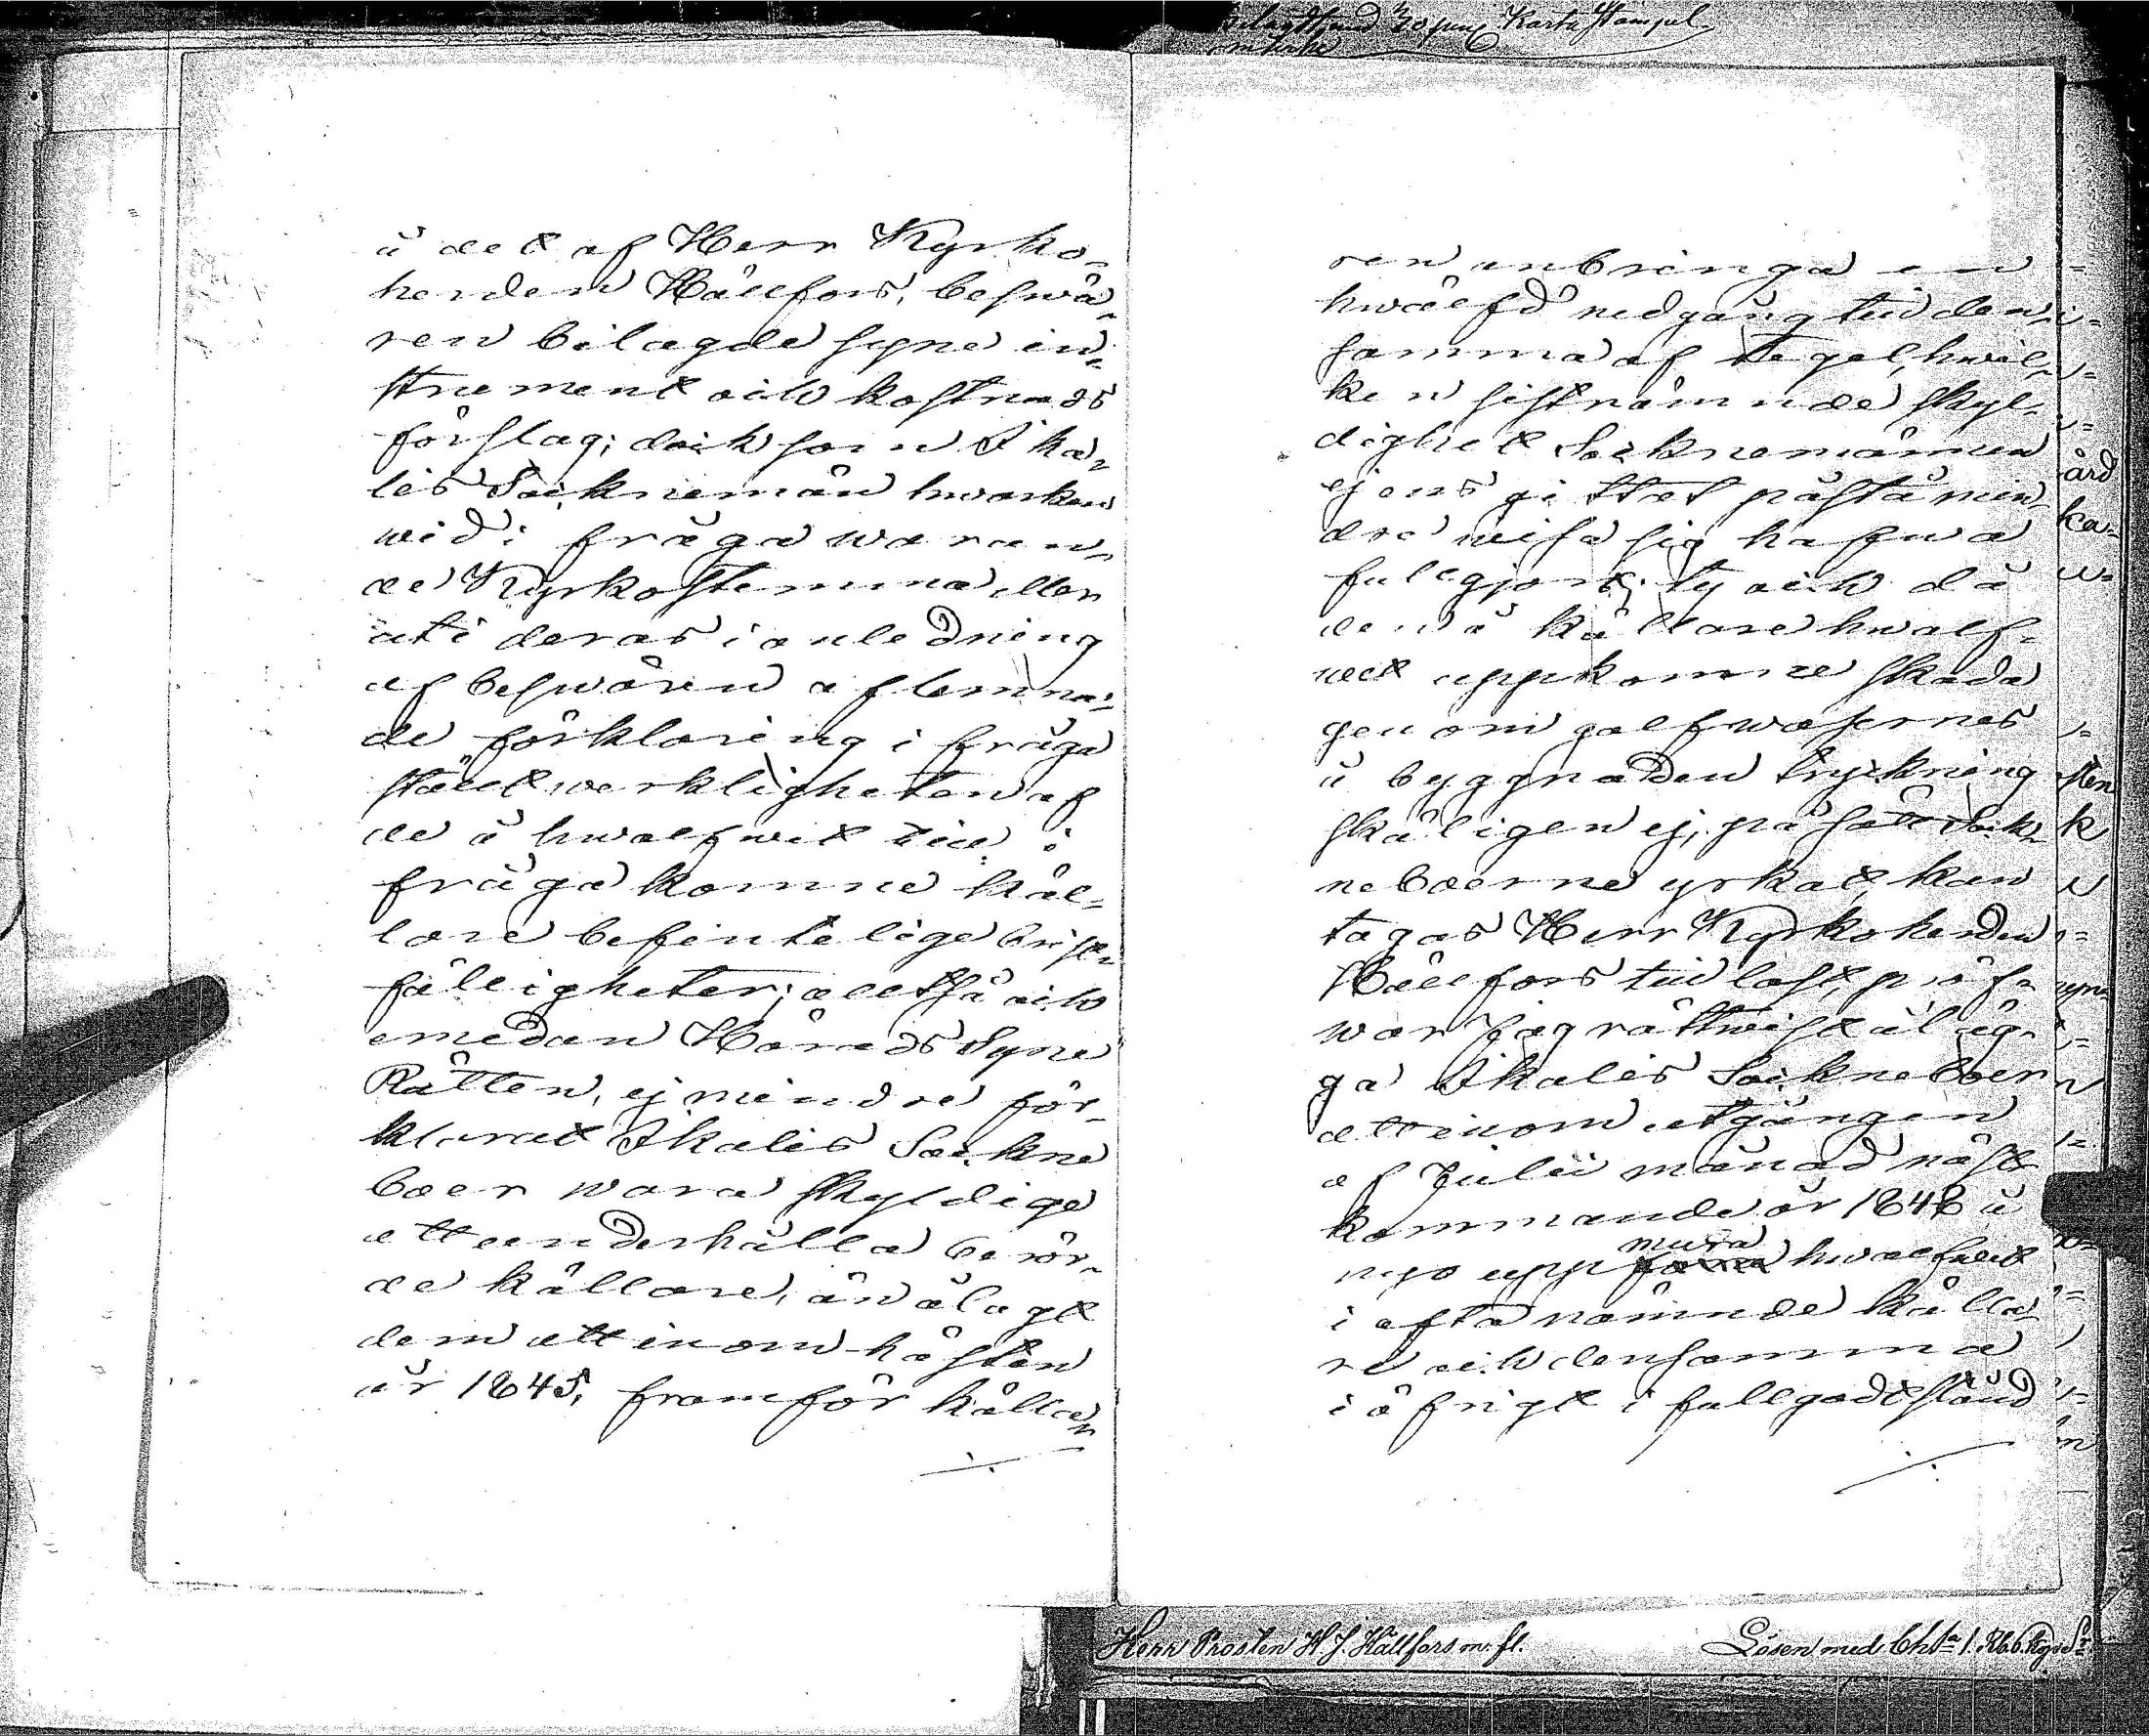 å det af Herr Kyrko-
herden Hällfors, beswä-
ren bilagde syne in-
strument och kostnads
förslag; dock som Ika-
lis Socknemän hwarken
wid i fråga waran-
de Kyrkostemma eller
uti deras i anledning
af beswären aflemna-
de förklaring i fråga
stält werkligheten af
de å hwalfwet till i
fråga komne käl-
lare befinteliga brist-
fälligheter; alltså och
emedan Härads Syne
Rätten, ej mindre för-
klarat Ikalis Sockne
boer wara skyldige
att underhålla berör-
de källare, än ålagt
dem att inom hösten
år 1845, framför källa-
ren anbringa en
hwälfd nedgång till den
samma af tegel, hwil-
ken sistnämnde skyl-
dighet Socknemännen
ejens gittat påstå min-
dre wisa sig hafwa
fullgjort; ty och då
den å källare hwalf-
wet uppkomne skada
genom golfwasernes
å byggnaden tryckning
skäligen ej, på sätt Sock-
neboerne yrkat, kan
tagas Herr Kyrkoherden
Hällfors till last, pröf-
war jag rättwist åläg-
ga Ikalis Sockneboer
att inom utgången
af Julii månad näst-
kommande år 1848 å
nyo upp mura hwalfwet
i oftanämnde källa-
re och densamma
i öfrigt i fullgodt stånd
Karta Stämpel
Herr Prosten H. J. Hällfors m. fl.
Lösen med Chta 1. Rb. 6. kop. Sr